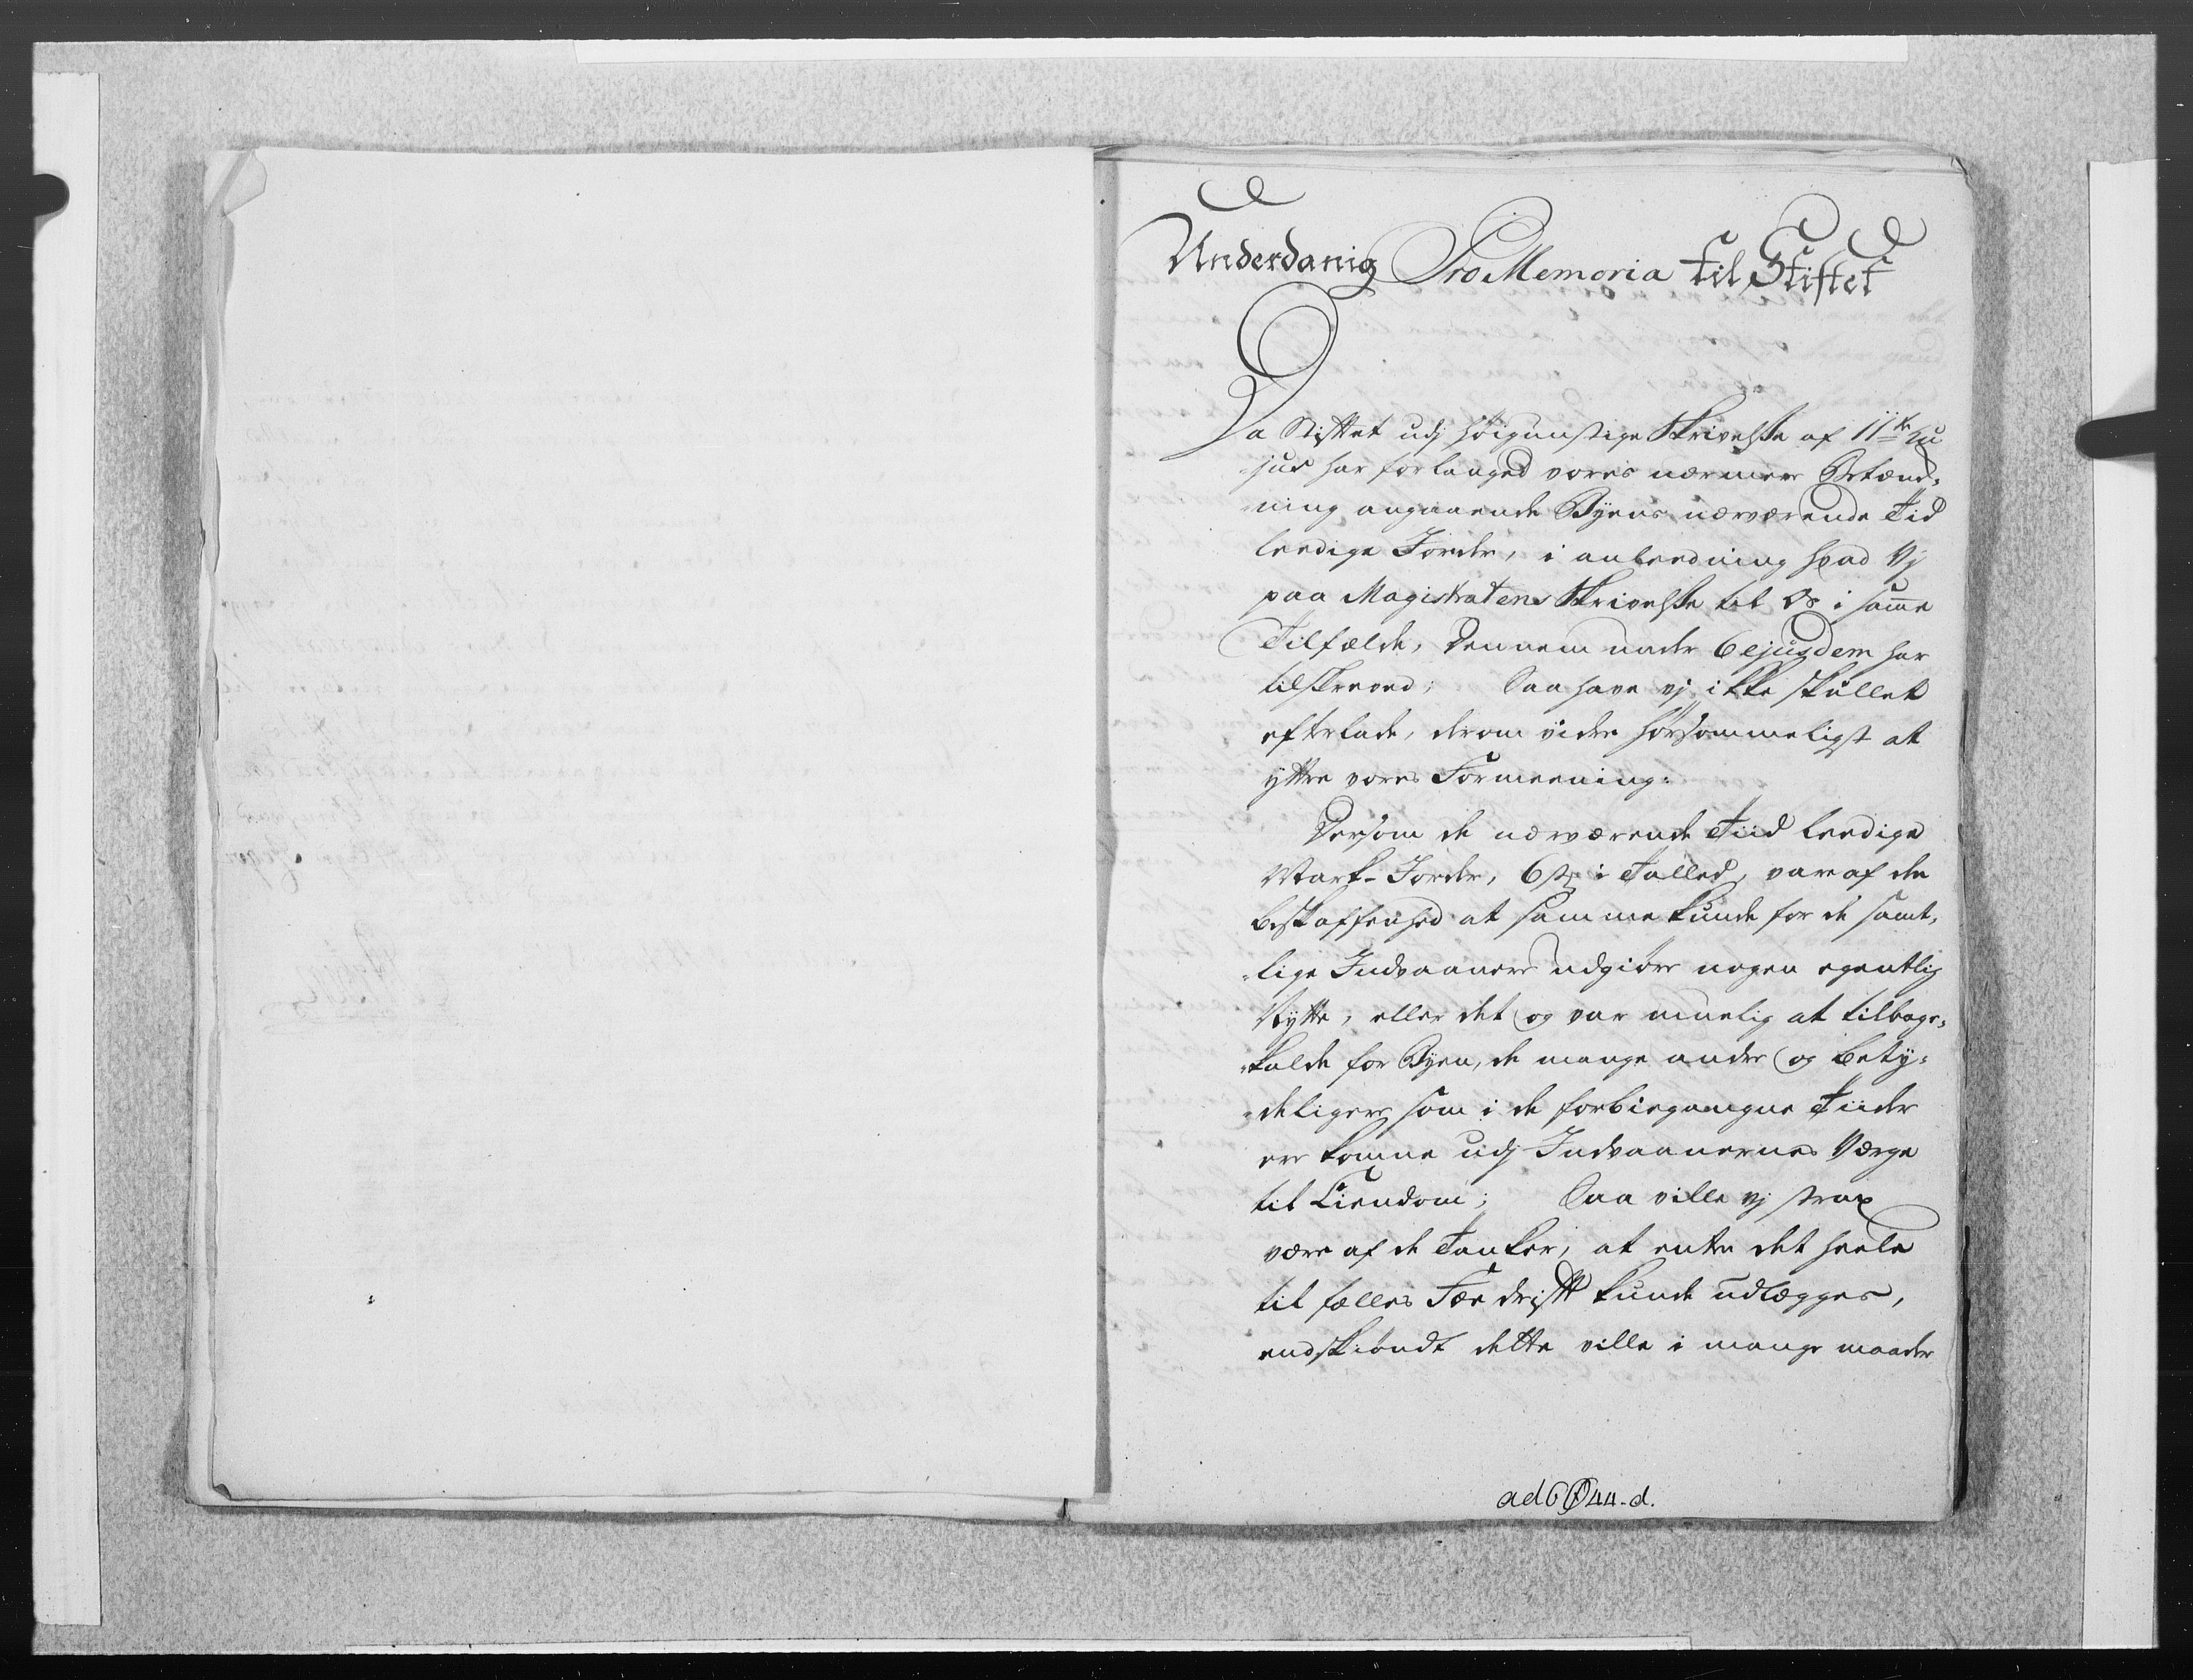 Underdanig Pro Memoria til Stiftet
Da Stiftet udj høigunstige Skrivelse af 11te hu
jus har forlanged vores nærmere Betænk¬
ning angaaende Byens nærværende Tid
leedige Jorder, i anleedning hvad Vj
paa Magistratens Skrivelse til Os i samme
Tilfælde, dennem under 6 ejusdem har
tilskreved; Saa have vj ikke skullet
efterlade, derom vidre hørsommeligst at
yttre vores Formeening:
Dersom de nærværende Tiid leedige
Mark-Jorder, 6 st i Talled, var af den
beskaffenhed at samme kunde for de samt¬
lige Indvaanere udgiøre nogen egentlig
Nytte, eller det og var muelig at tilbage¬
kalde for Byen, de mange andre og bety¬
deligere som i de forbiegangne Tiider
ere komne udj Indvaanernes Værge
til Eiendom; Saa ville vj strax
være af de Tanker, at enten det heele
til fælles Fæe drift kunde udlægges,
endskiøndt dette ville i mange maader
ad 6044-d.